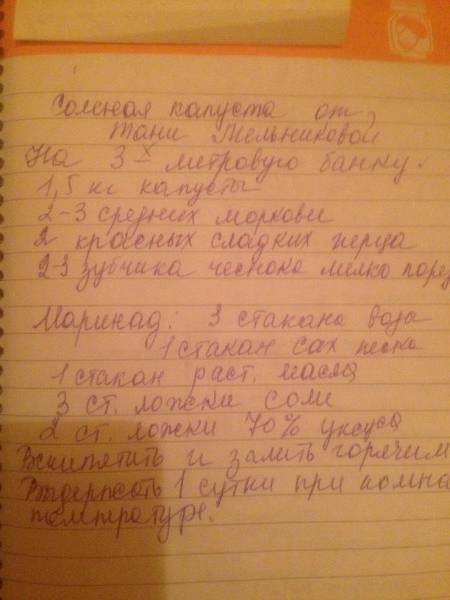 Соленая капуста от
Тани Мельниковой
На 3х литровую банку.
1,5 кг капусты
2-3 средних моркови
2 красных сладких перца
2-3 зубчика чеснока мелко порез
Маринад: 3 стакана вода
1 стакан сах песка
1 стакан раст. масла
3 ст. ложки соли
2 ст. ложки 70% уксуса
Вскипятить и залить горячим
Выдержать 1 сутки при комна
температуре.